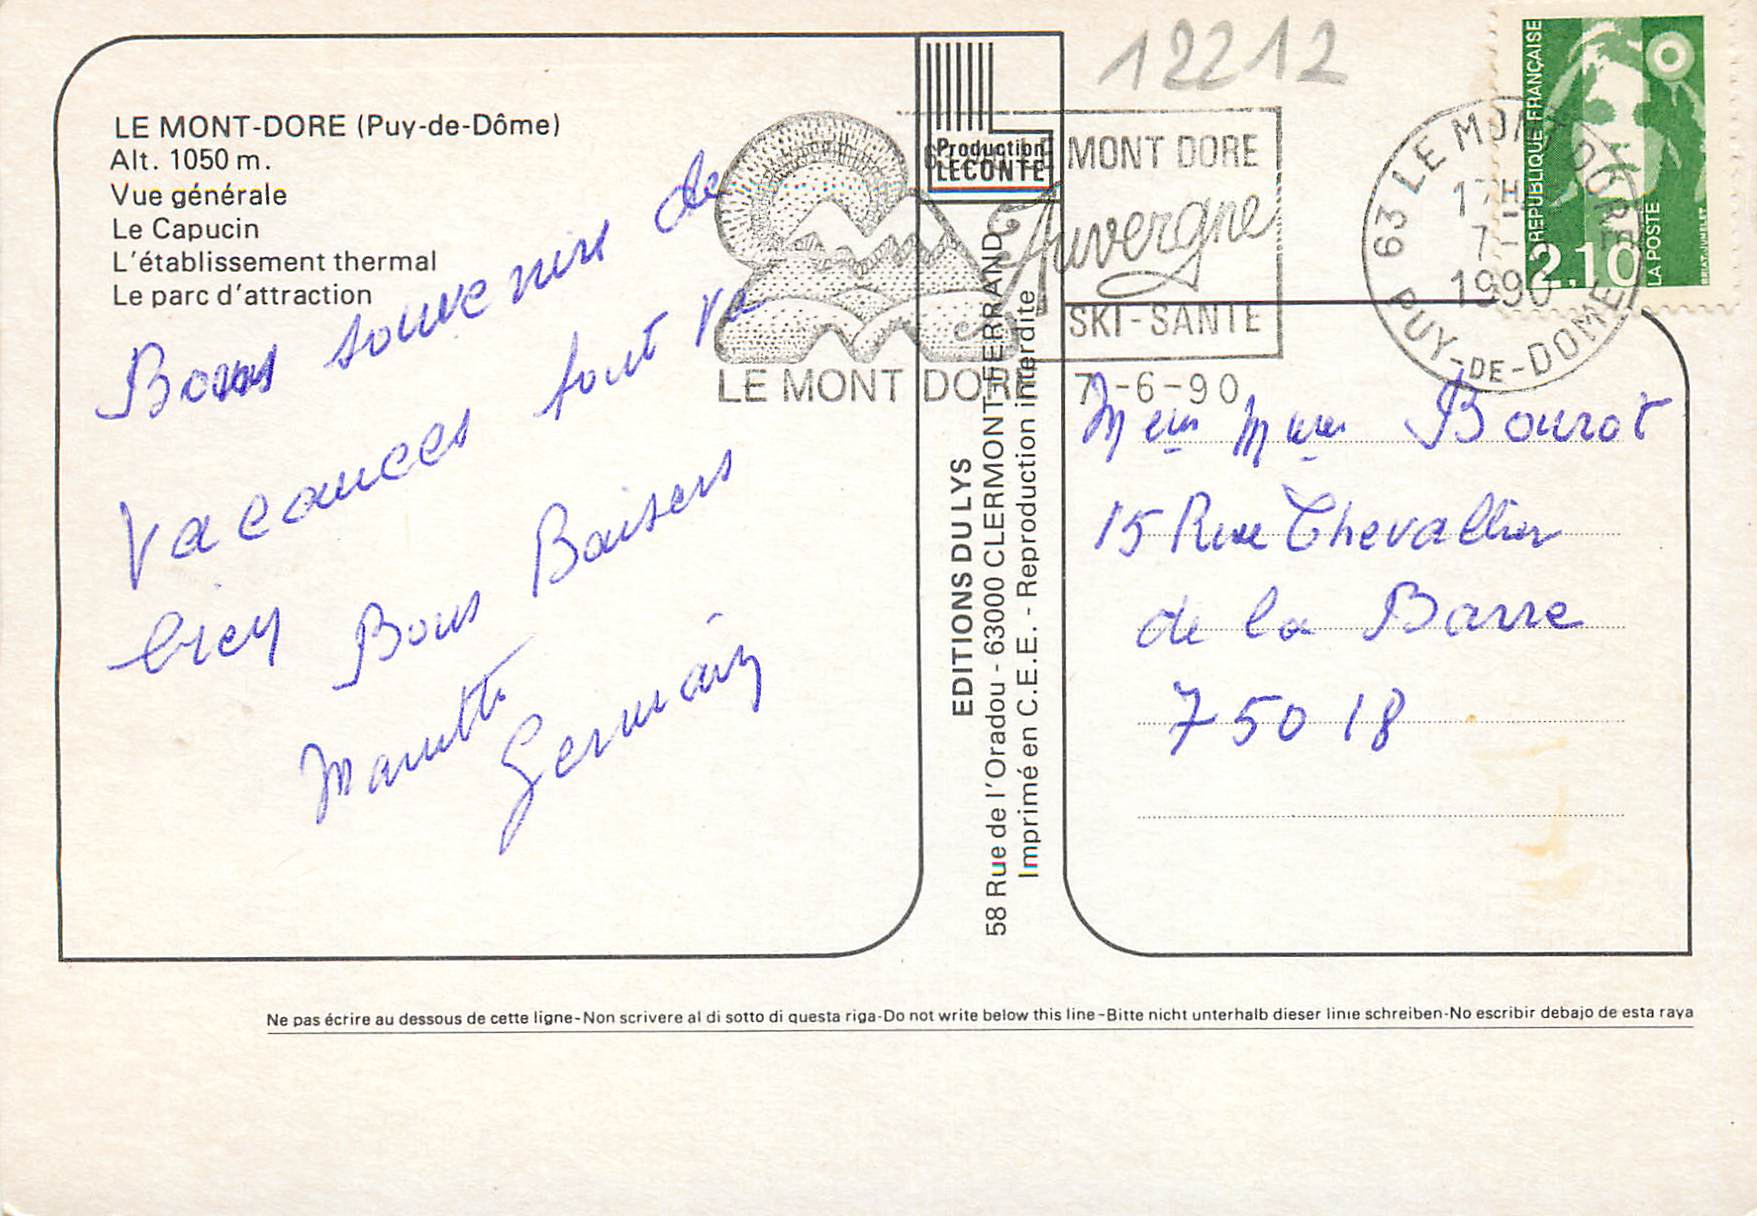 12212
LE MONT-DORE (Puy-de-Dôme)
Alt. 1050 m.
Vue générale
Le Capucin
L'établissement thermal
Le parc d'attraction
Bons souvenirs de
vacances tout va
bien Bons Baisers
Germain
Production
LECONTE
MONT DORE
Auvergne
SKI-SANTE
LE MONT DORE 7-6-90
63 LE MONT DORE
17H
7-
1990
PUY-DE-DOME
REPUBLIQUE FRANÇAISE
2,10
LA POSTE
BRIAT-JUMELET
EDITIONS DU LYS
58 Rue de l'Oradou - 63000 CLERMONT-FERRAND
Imprimé en C.E.E. - Reproduction interdite
Bourot
15 Rue Chevallier
de la Barre
75018
Ne pas écrire au dessous de cette ligne-Non scrivere al di sotto di questa riga-Do not write below this line-Bitte nicht unterhalb dieser linie schreiben-No escribir debajo de esta raya